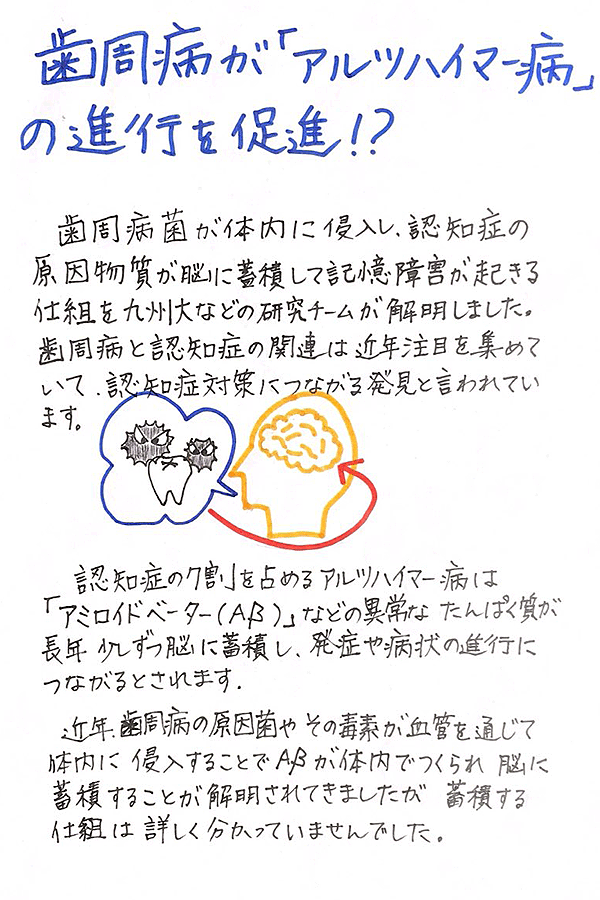 歯周病が「アルツハイマー病」
の進行を促進!?
歯周病菌が体内に侵入し、認知症の
原因物質が脳に蓄積して記憶障害が起きる
仕組を九州大などの研究チームが解明しました。
歯周病と認知症の関連は近年注目を集めて
いて、認知症対策につながる発見と言われてい
ます。
認知症の7割を占めるアルツハイマー病は
「アミロイドベーター(Aβ)」などの異常なたんぱく質が
長年少しずつ脳に蓄積し、発症や病状の進行に
つながるとされます.
近年、歯周病の原因菌やその毒素が血管を通じて
体内に侵入することでAβが体内でつくられ脳に
蓄積することが解明されてきましたが 蓄積する
仕組は詳しく分かっていませんでした。